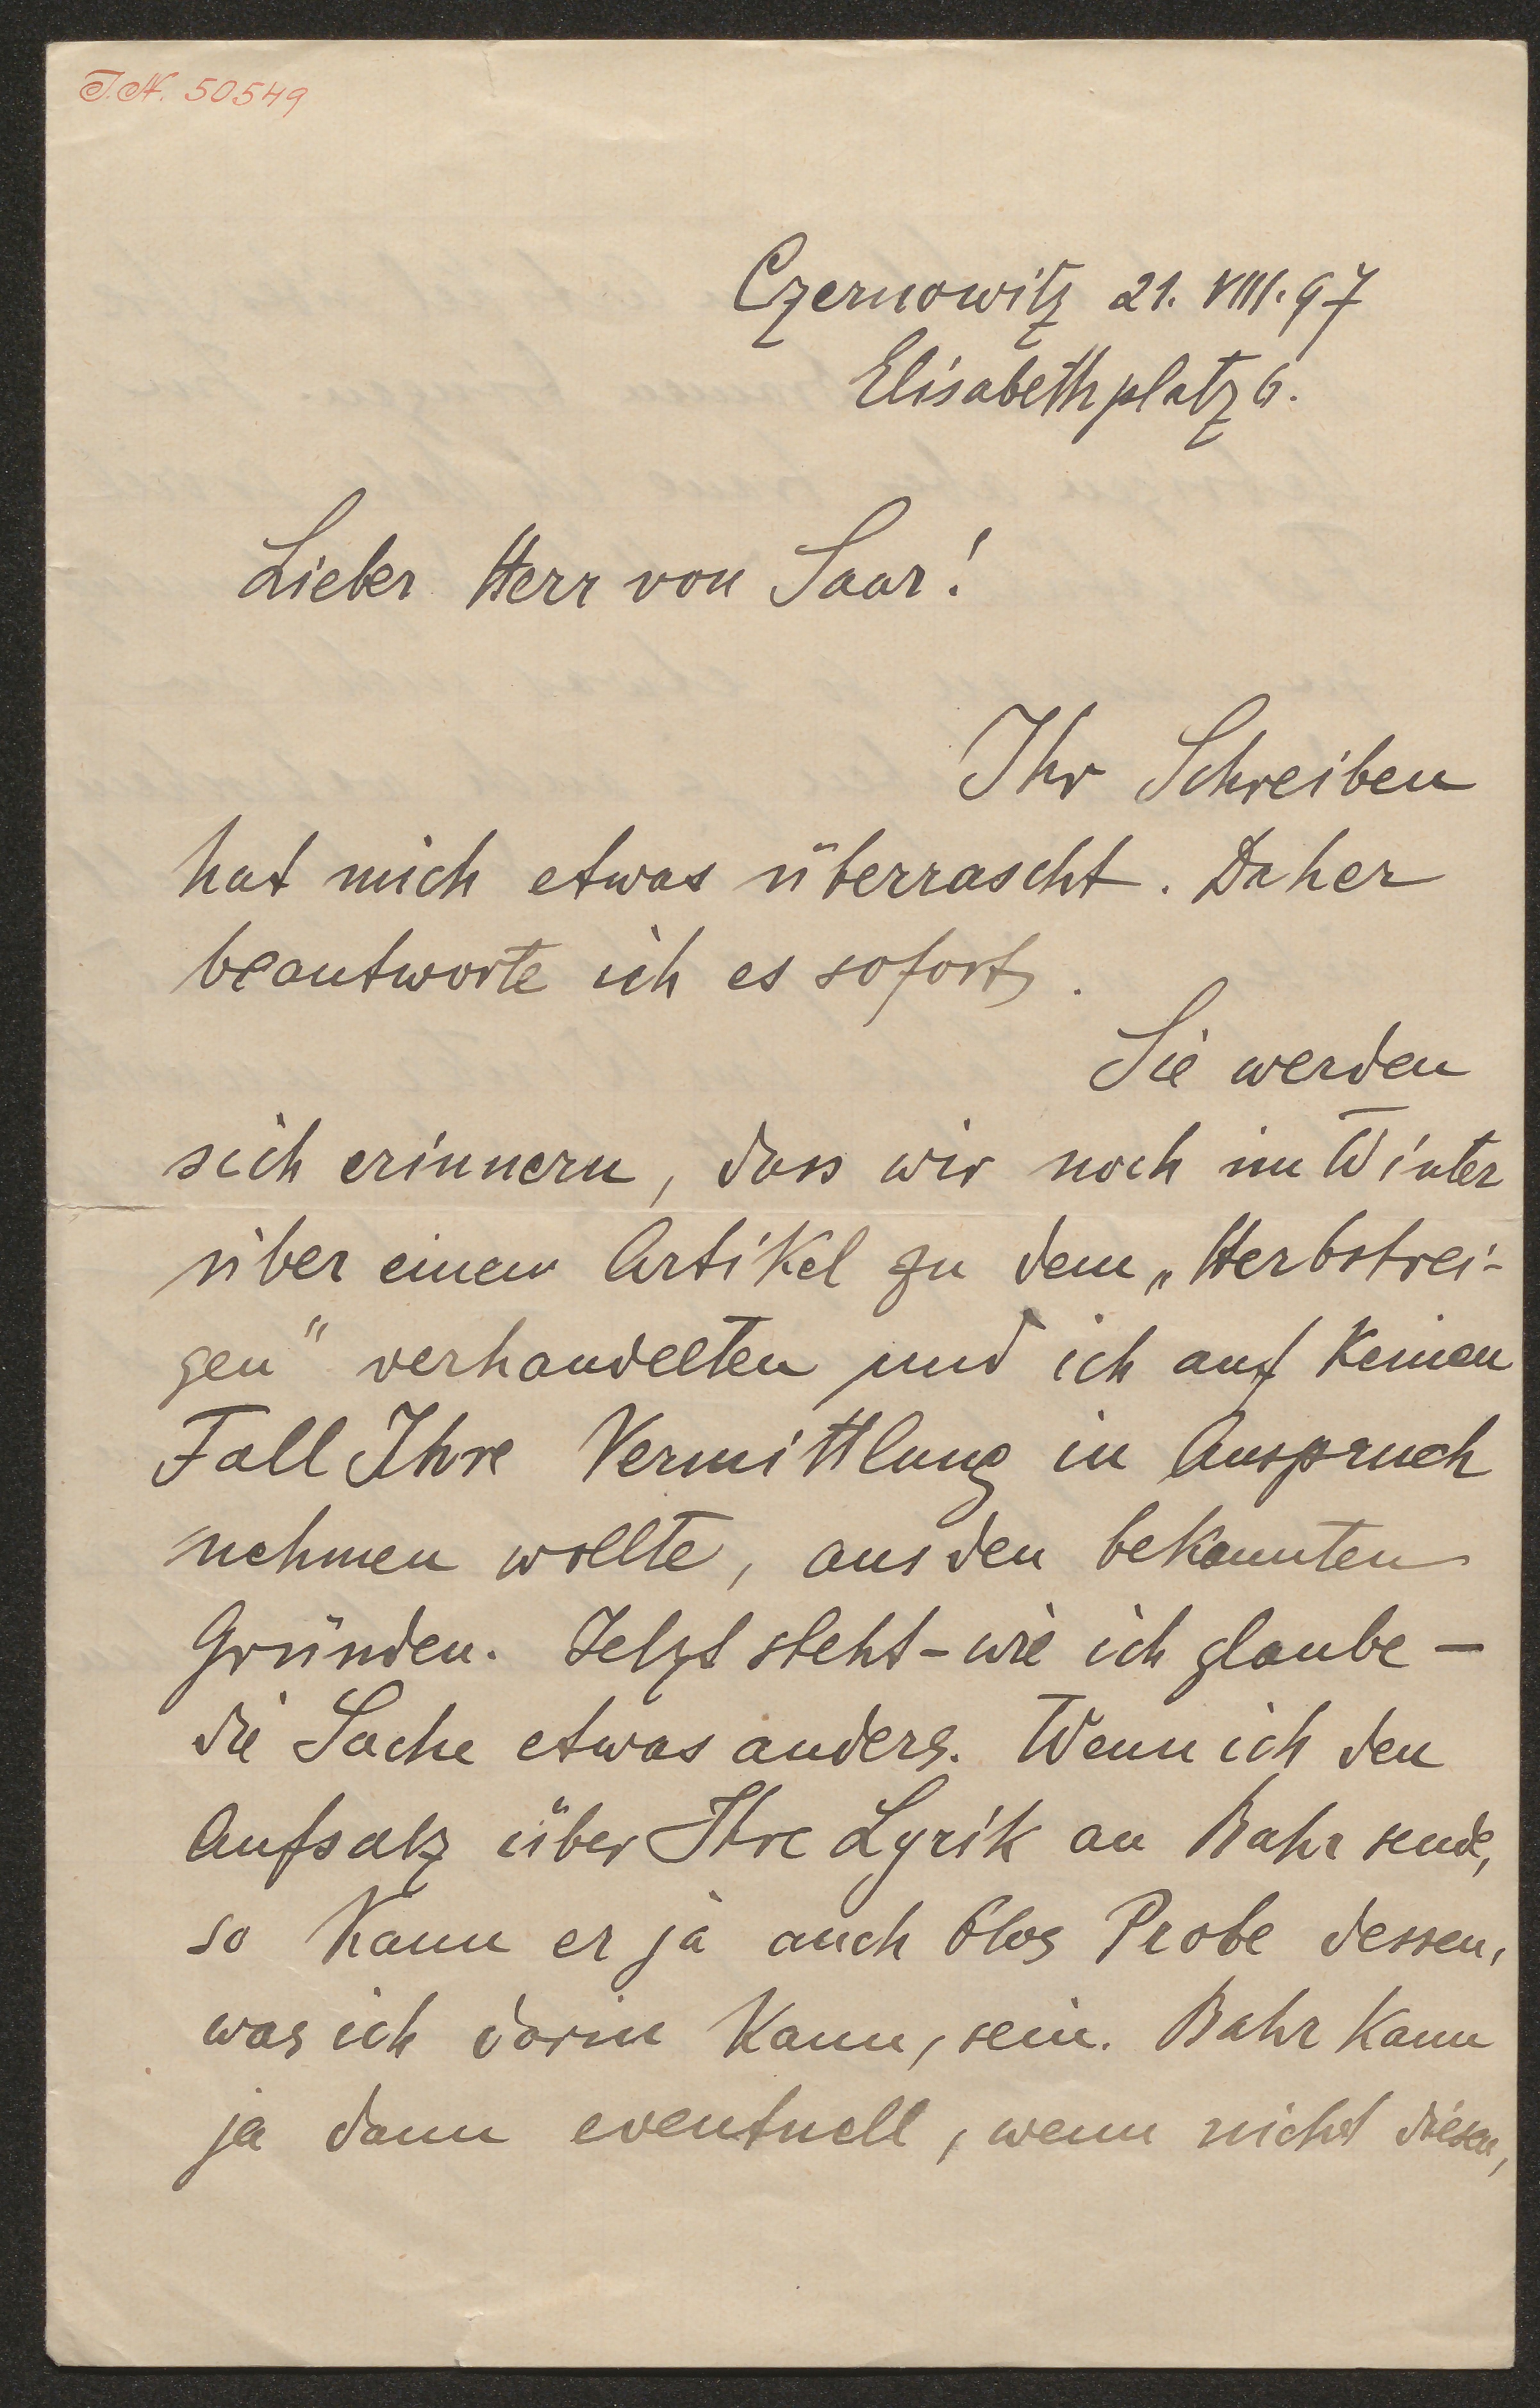 I.N. 50549
Czernowitz 21. VIII. 97
Elisabethplatz 6.
Lieber Herr von Saar!
Ihr Schreiben
hat mich etwas überrascht. Daher
beantworte ich es sofort.
Sie werden
sich erinnern, dass wir noch im Winter
über einen Artikel zu dem „Herbstrei-
gen" verhandelten und ich auf keinen
Fall Ihre Vermittlung in Anspruch
nehmen wollte, aus den bekannten
Gründen. Jetzt steht – wie ich glaube –
die Sache etwas anders. Wenn ich den
Aufsatz über Ihre Lyrik an Bahr sende,
so kann er ja auch blos Probe dessen,
was ich darin kann, sein. Bahr kann
ja dann eventuell, wenn nicht diesen,